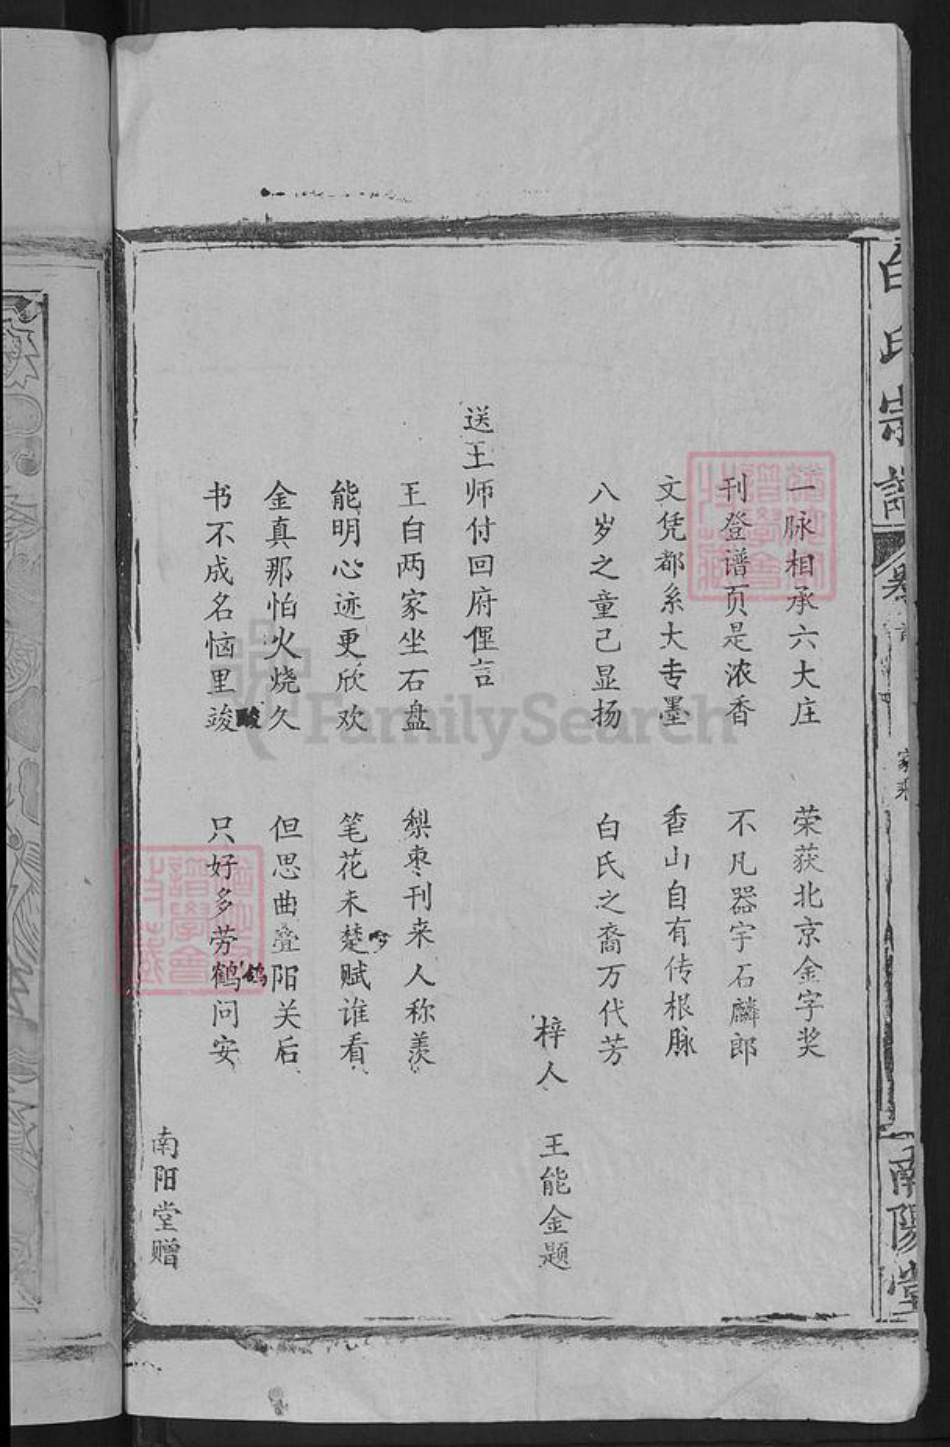 白氏宗譜
卷首
家乘
南陽堂
一脉相承六大庄　荣获北京金字奖
刊登谱页是浓香　不凡器宇石麟郎
文凭都系大专墨　香山自有传根脉
八岁之童己显扬　白氏之裔万代芳
梓人　王能金题
送王师付回府俚言
王白两家坐石盘　梨枣刊来人称羡
能明心迹更欣欢　笔花未楚赋谁看
金真那怕火烧久　但思曲叠阳关后
书不成名恼里竣酸　只好多劳鹤鸽问安
南阳堂赠
FamilySearch